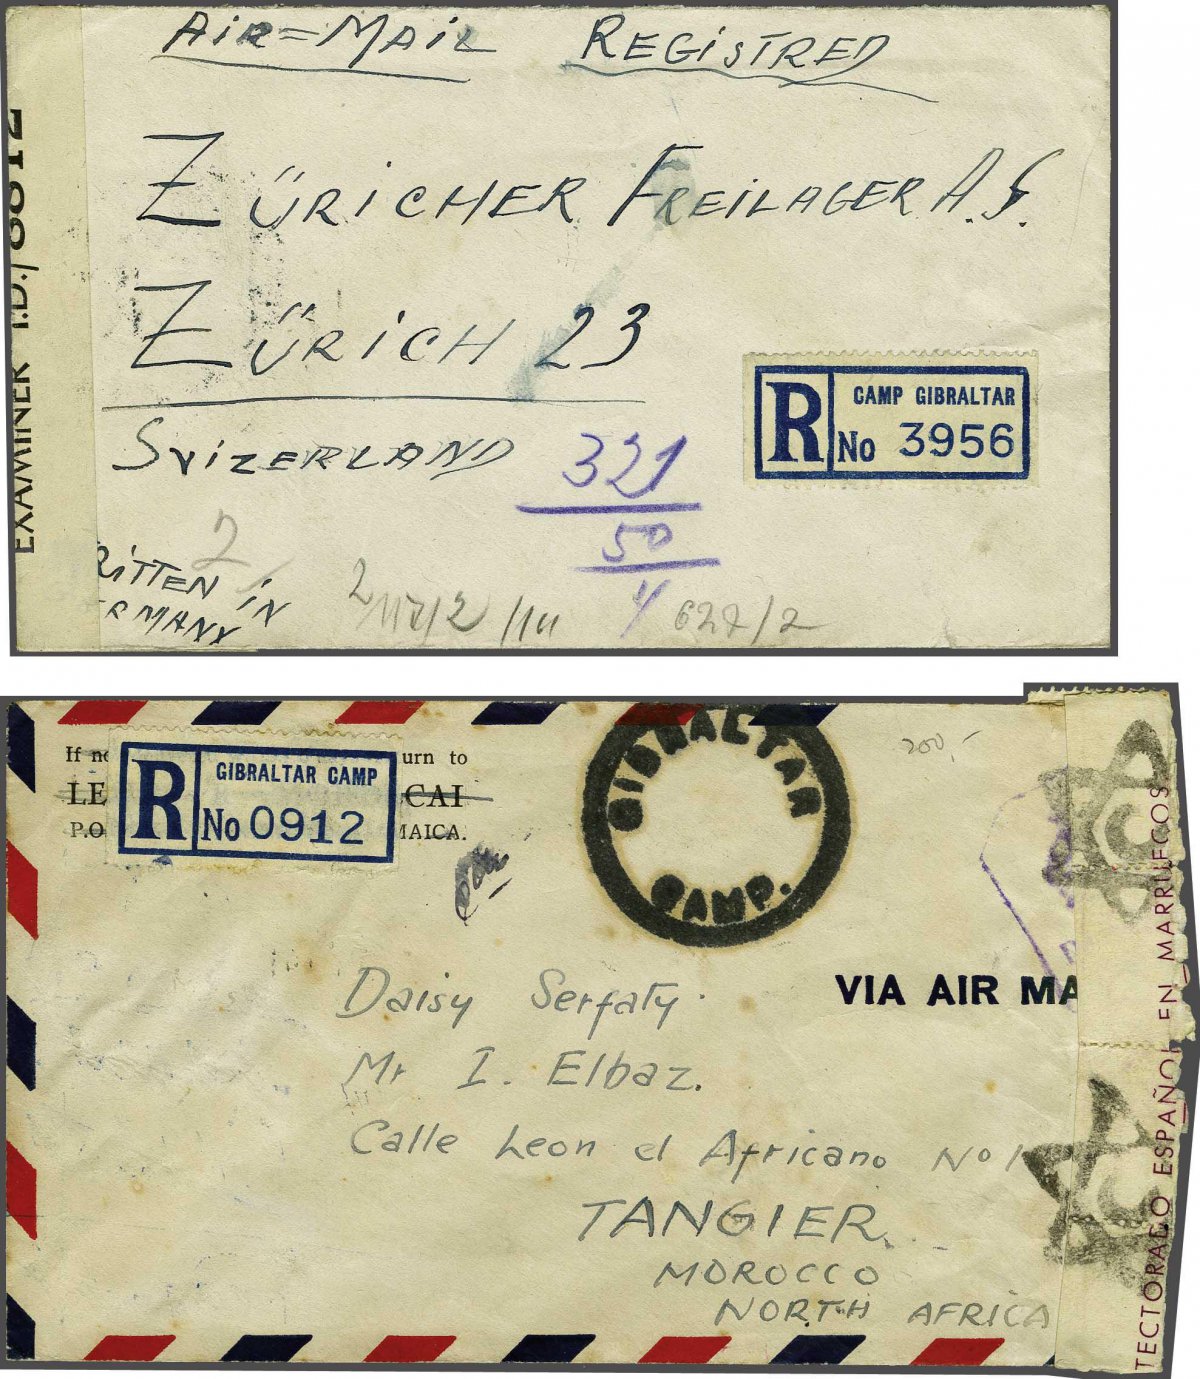 AiR=MAiL REGiSTRED
ZÜRiCHER FREiLAGER A.G.
ZÜRiCH 23
SviZERLAND
EXAMINER I.D./6812
R
CAMP GIBRALTAR
No 3956
321
50
4
2
RiTTEN iN
ERMANY
628/2
If no urn to
LE CAI
P.O MAICA.
R
GIBRALTAR CAMP
No 0912
GIBRALTAR
CAMP.
200,-
VIA AIR MA
Daisy Serfaty.
Mr I. Elbaz.
Calle Leon el Africano No 1
TANGIER.
MOROCCO
NORTH AFRICA
TECTORADO ESPAÑOL EN MARRUECOS